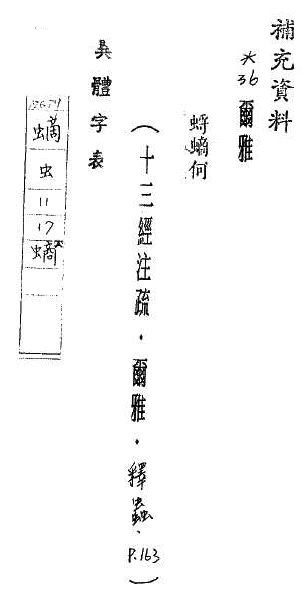 補充資料
*36 爾雅
蛶螪何
(十三經注疏．爾雅．釋蟲．P.163)
異體字表
虫
11
17
螪